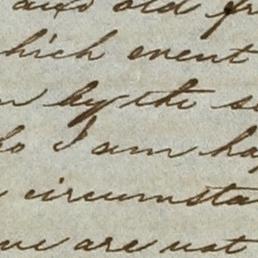 and old fr
which event
by the s
I am ha
circumsta
are not